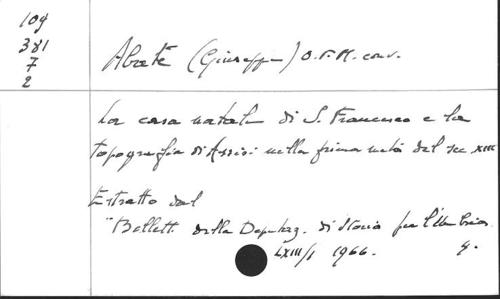 109
381
7
2
Abate (Giuseppe) O.F.M. conv.
La casa natale di S. Francesco e la
topografia di Assisi nella prima metà del sec XIII
Estratto dal
"Bollett. della Deputaz. di Storia per l'Umbria
LXIII/1 1966.